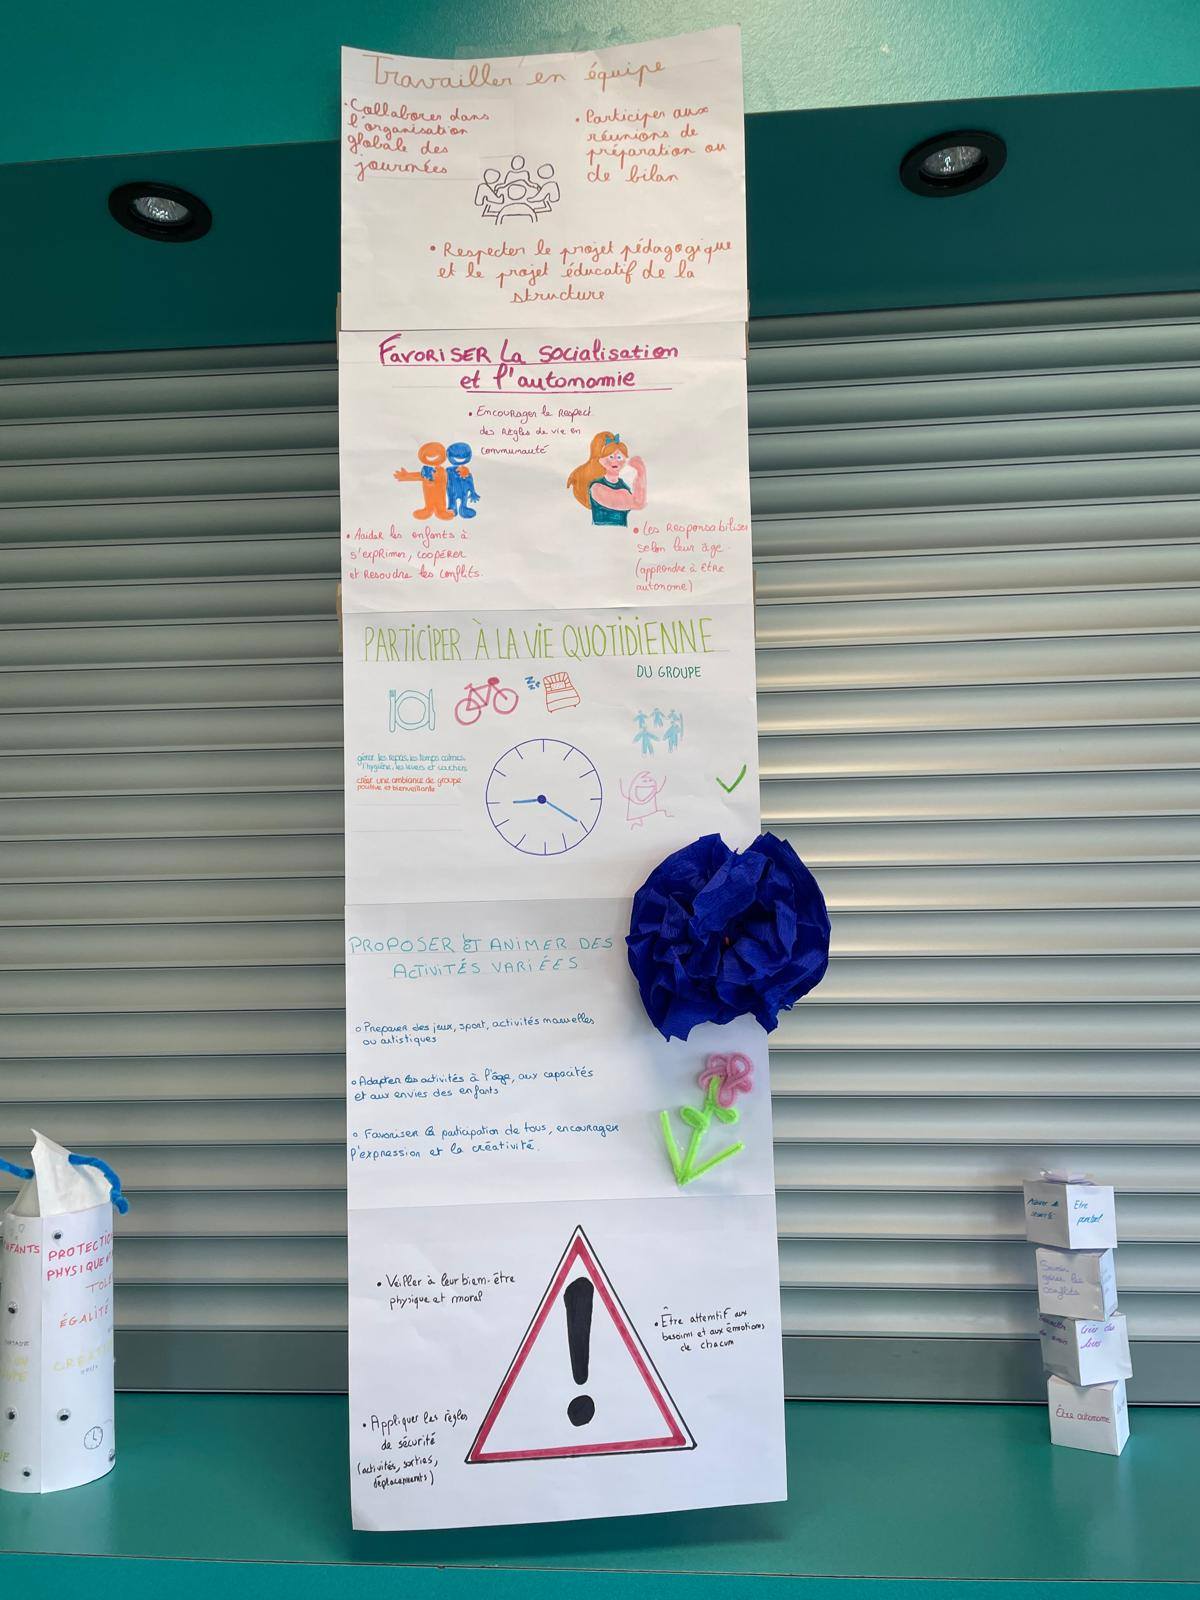 Travailler en équipe
• Collaborer dans
l'organisation
globale des
journées
• Participer aux
réunions de
préparation ou
de bilan
• Respecter le projet pédagogique
et le projet éducatif de la
structure
FAVORISER La socialisation
et l'autonomie
• Encourager le respect
des règles de vie en
communauté
• Aider les enfants à
s'exprimer, coopérer
et résoudre les conflits.
• Les Responsabiliser
selon leur âge.
(apprendre à être
autonome)
PARTICIPER À LA VIE QUOTIDIENNE
DU GROUPE
gérer les repas, les temps calmes,
l'hygiène, les levers et couchers
créer une ambiance de groupe
positive et bienveillante
PROPOSER ET ANIMER DES
ACTIVITÉS VARIÉES
• Préparer des jeux, sport, activités manuelles
ou artistiques
• Adapter les activités à l'âge, aux capacités
et aux envies des enfants
• Favoriser la participation de tous, encourager
l'expression et la créativité.
• Veiller à leur bien-être
physique et moral
• Être attentif aux
besoins et aux émotions
de chacun
• Appliquer les règles
de sécurité
(activités, sorties,
déplacements)
PROTECTION
PHYSIQUE
ÉGALITÉ
Etre
ponctuel
Savoir
gérer les
conflits
Créer des
liens
Être autonome